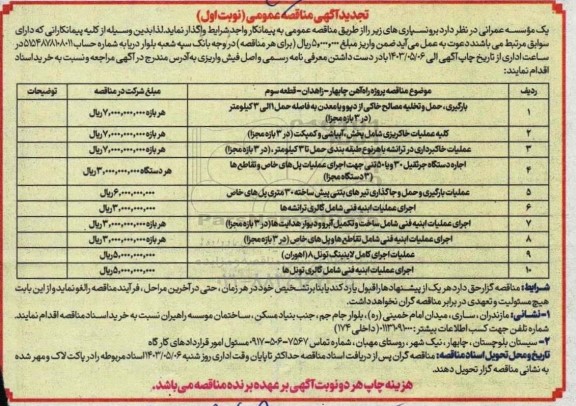 تجدید آگهی مناقصه عمومی (نوبت اول)
یک مؤسسه عمرانی در نظر دارد برونسپاری های زیر را از طریق مناقصه عمومی به پیمانکار واجد شرایط واگذار نماید. لذا بدین وسیله از کلیه پیمانکارانی که دارای
سوابق مرتبط می باشند دعوت به عمل می آید ضمن واریز مبلغ ۵,۰۰۰,۰۰۰ ریال (برای هر مناقصه) در وجه بانک سپه شعبه بلوار دریا به شماره حساب در
ساعت اداری از تاریخ چاپ آگهی الی ۱۴۰۳/۰۵/۰۶ با در دست داشتن معرفی نامه رسمی و اصل فیش واریزی به آدرس مندرج در آگهی مراجعه و نسبت به خرید اسناد
اقدام نمایند:
ردیف موضوع مناقصه پروژه راه آهن چابهار - زاهدان - قطعه سوم مبلغ شرکت در مناقصه توضیحات
۱ بارگیری، حمل و تخلیه مصالح خاکی از دپو و یا معدن به فاصله حمل ۱ الی ۳ کیلومتر (در ۳ بازه مجزا) هر بازه ۷,۰۰۰,۰۰۰,۰۰۰ ریال
۲ کلیه عملیات خاکریزی شامل پخش، آبپاشی و کمپکت (در ۳ بازه مجزا) هر بازه ۷,۰۰۰,۰۰۰,۰۰۰ ریال
۳ عملیات خاکبرداری در ترانشه با هر نوع طبقه بندی حمل تا ۳ کیلومتر، (در ۳ بازه مجزا) هر بازه ۷,۰۰۰,۰۰۰,۰۰۰ ریال
۴ اجاره دستگاه جرثقیل ۳۰ و یا ۵۰ تنی جهت اجرای عملیات پل های خاص و تقاطع ها (۳ دستگاه مجزا) هر دستگاه ۳,۰۰۰,۰۰۰,۰۰۰ ریال
۵ عملیات بارگیری و حمل و جاگذاری تیرهای بتنی پیش ساخته ۳۰ متری پل های خاص ۶,۰۰۰,۰۰۰,۰۰۰ ریال
۶ اجرای عملیات ابنیه فنی شامل گالری ترانشه ها ۳,۰۰۰,۰۰۰,۰۰۰ ریال
۷ اجرای عملیات ابنیه فنی شامل ساخت و تکمیل آبرو و دیوار هدایت ها (در ۳ بازه مجزا) هر بازه ۳,۰۰۰,۰۰۰,۰۰۰ ریال
۸ اجرای عملیات ابنیه فنی شامل تقاطع ها و پل های خاص (در ۳ بازه مجزا) هر بازه ۳,۰۰۰,۰۰۰,۰۰۰ ریال
۹ عملیات اجرای کامل لاینینگ تونل ۸ (اهوران) ۵,۰۰۰,۰۰۰,۰۰۰ ریال
۱۰ اجرای عملیات ابنیه فنی شامل گالری تونل ها ۵,۰۰۰,۰۰۰,۰۰۰ ریال
شرایط: مناقصه گزار حق دارد هر یک از پیشنهادها را قبول یا رد کند یا بنا بر تشخیص خود در هر زمان، حتی در آخرین مراحل، فرآیند مناقصه را لغو نماید و از این بابت
هیچ مسئولیت و تعهدی در برابر مناقصه گران نخواهد داشت.
۱- نشانی: مازندران، ساری، میدان امام خمینی (ره)، بلوار جام جم، جنب بنیاد مسکن، ساختمان موسسه راهبران نسبت به خرید اسناد مناقصه اقدام نمایند.
شماره تلفن جهت کسب اطلاعات بیشتر: (داخلی ۱۷۴)
۲- سیستان بلوچستان، چابهار، نیک شهر، روستای مهبان، شماره تماس ۰۹۱۷۵۰۶۷۵۶۷ مسئول امور قراردادهای کارگاه
تاریخ و محل تحویل اسناد مناقصه: مناقصه گران پس از دریافت اسناد مناقصه حداکثر تا پایان وقت اداری روز شنبه ۱۴۰۳/۰۵/۰۶ اسناد مربوطه را در پاکت لاک و مهر شده
به نشانی مناقصه گزار تحویل دهند.
هزینه چاپ هر دو نوبت آگهی بر عهده برنده مناقصه می باشد.